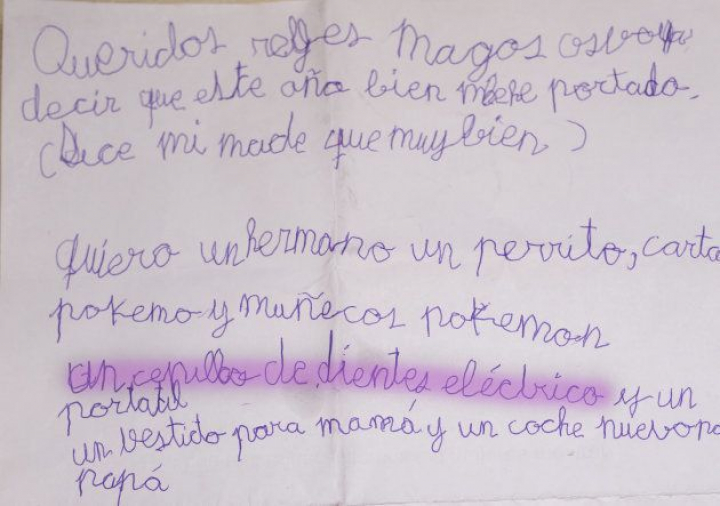 Queridos relles Magos os voya
decir que este año bien mehe portado.
(Dice mi made que muy bien)
quiero un hermano un perrito, carta
pokemo y muñecos pokemon
un cepillo de dientes eléctrico y un
portatil
un vestido para mamá y un coche nuevo pa
papá